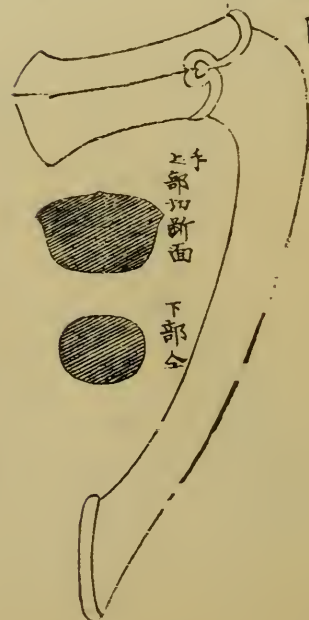 手
上部切断面
下部仝